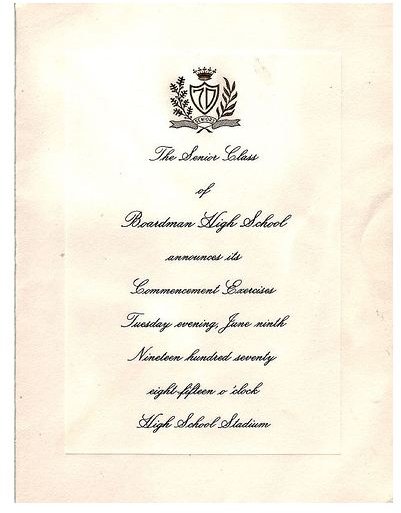 70
SENIORS
The Senior Class
of
Boardman High School
announces its
Commencement Exercises
Tuesday evening, June ninth
Nineteen hundred seventy
eight-fifteen o'clock
High School Stadium